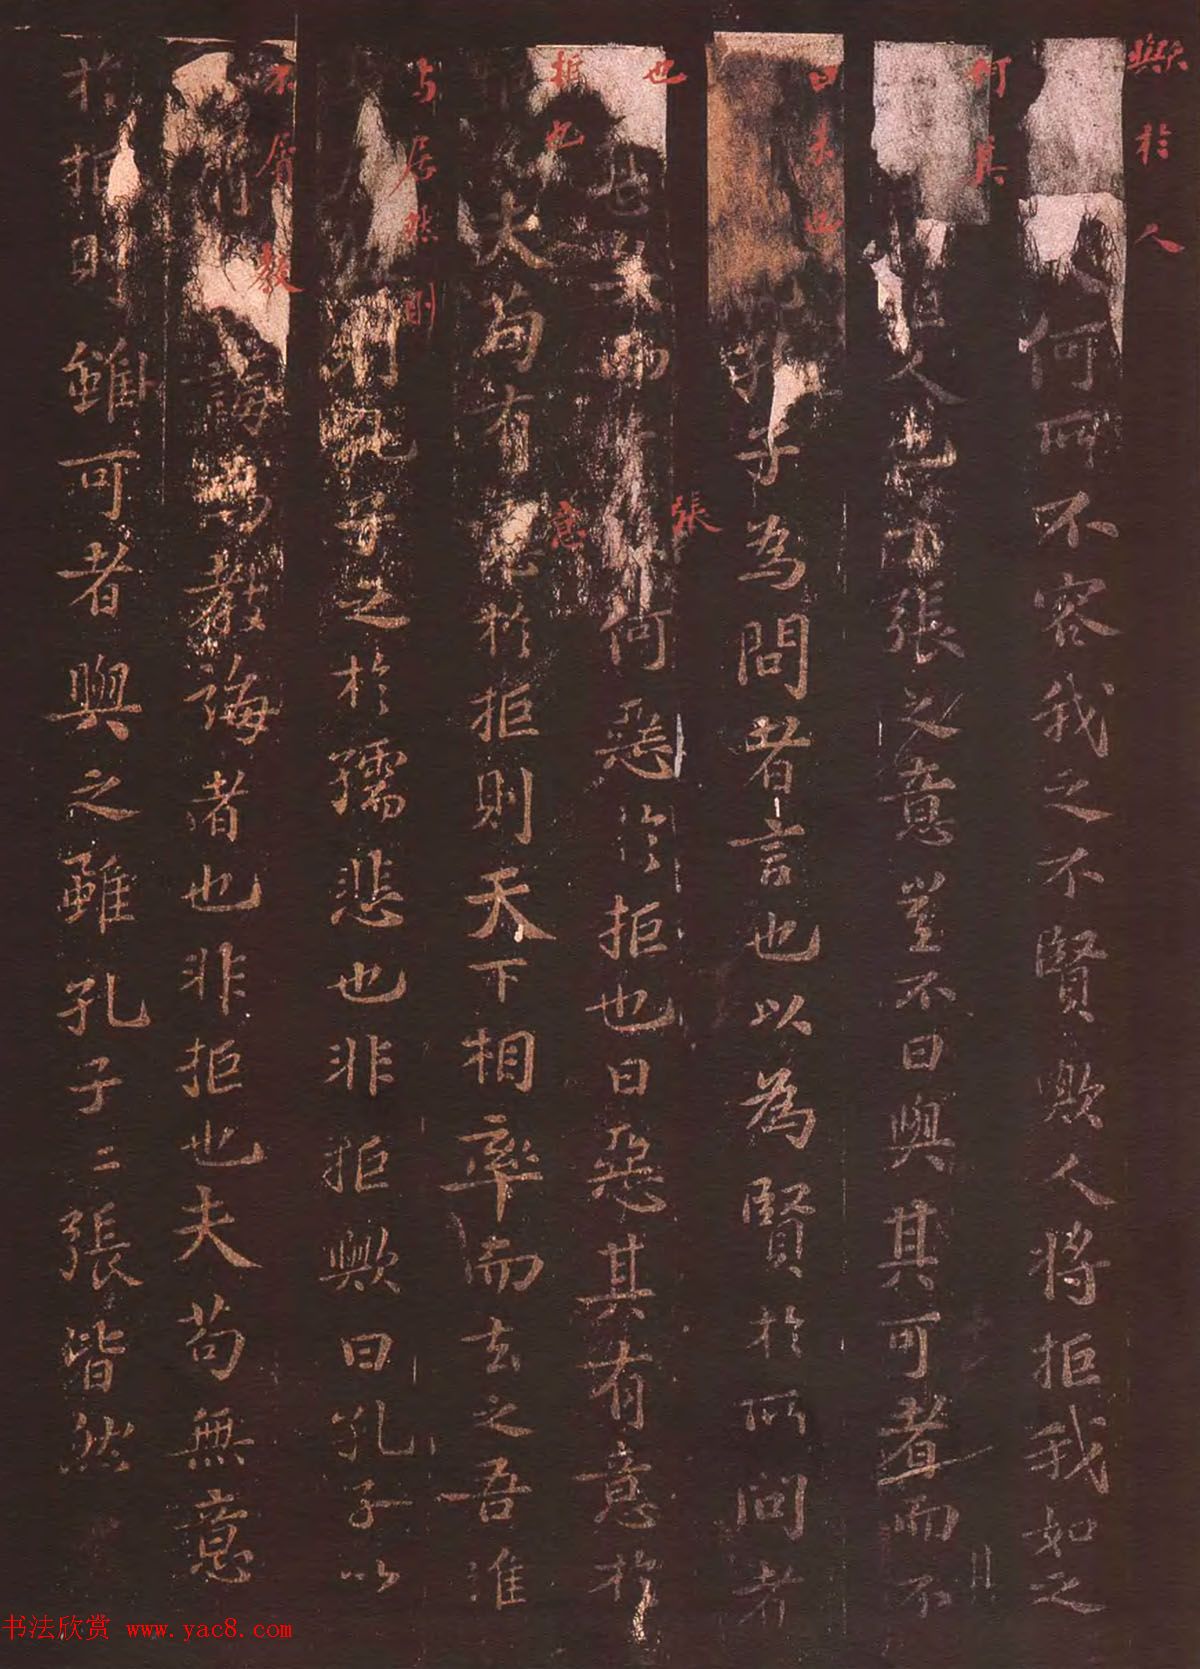 歟於人
何所不容我之不賢歟人將拒我如之
何其
拒人也子張之意豈不曰與其可者而不
曰未也
孔子為問者言也以為賢於所問者
也
張
是也夫何惡於拒也曰惡其有意於
拒也
意
夫苟有意於拒則天下相率而去之吾誰
与居然則
孔子之於孺悲也非拒歟曰孔子以
不屑教
誨為教誨者也非拒也夫苟無意
於拒則雖可者與之雖孔子二張皆然
书法欣赏 www.yac8.com